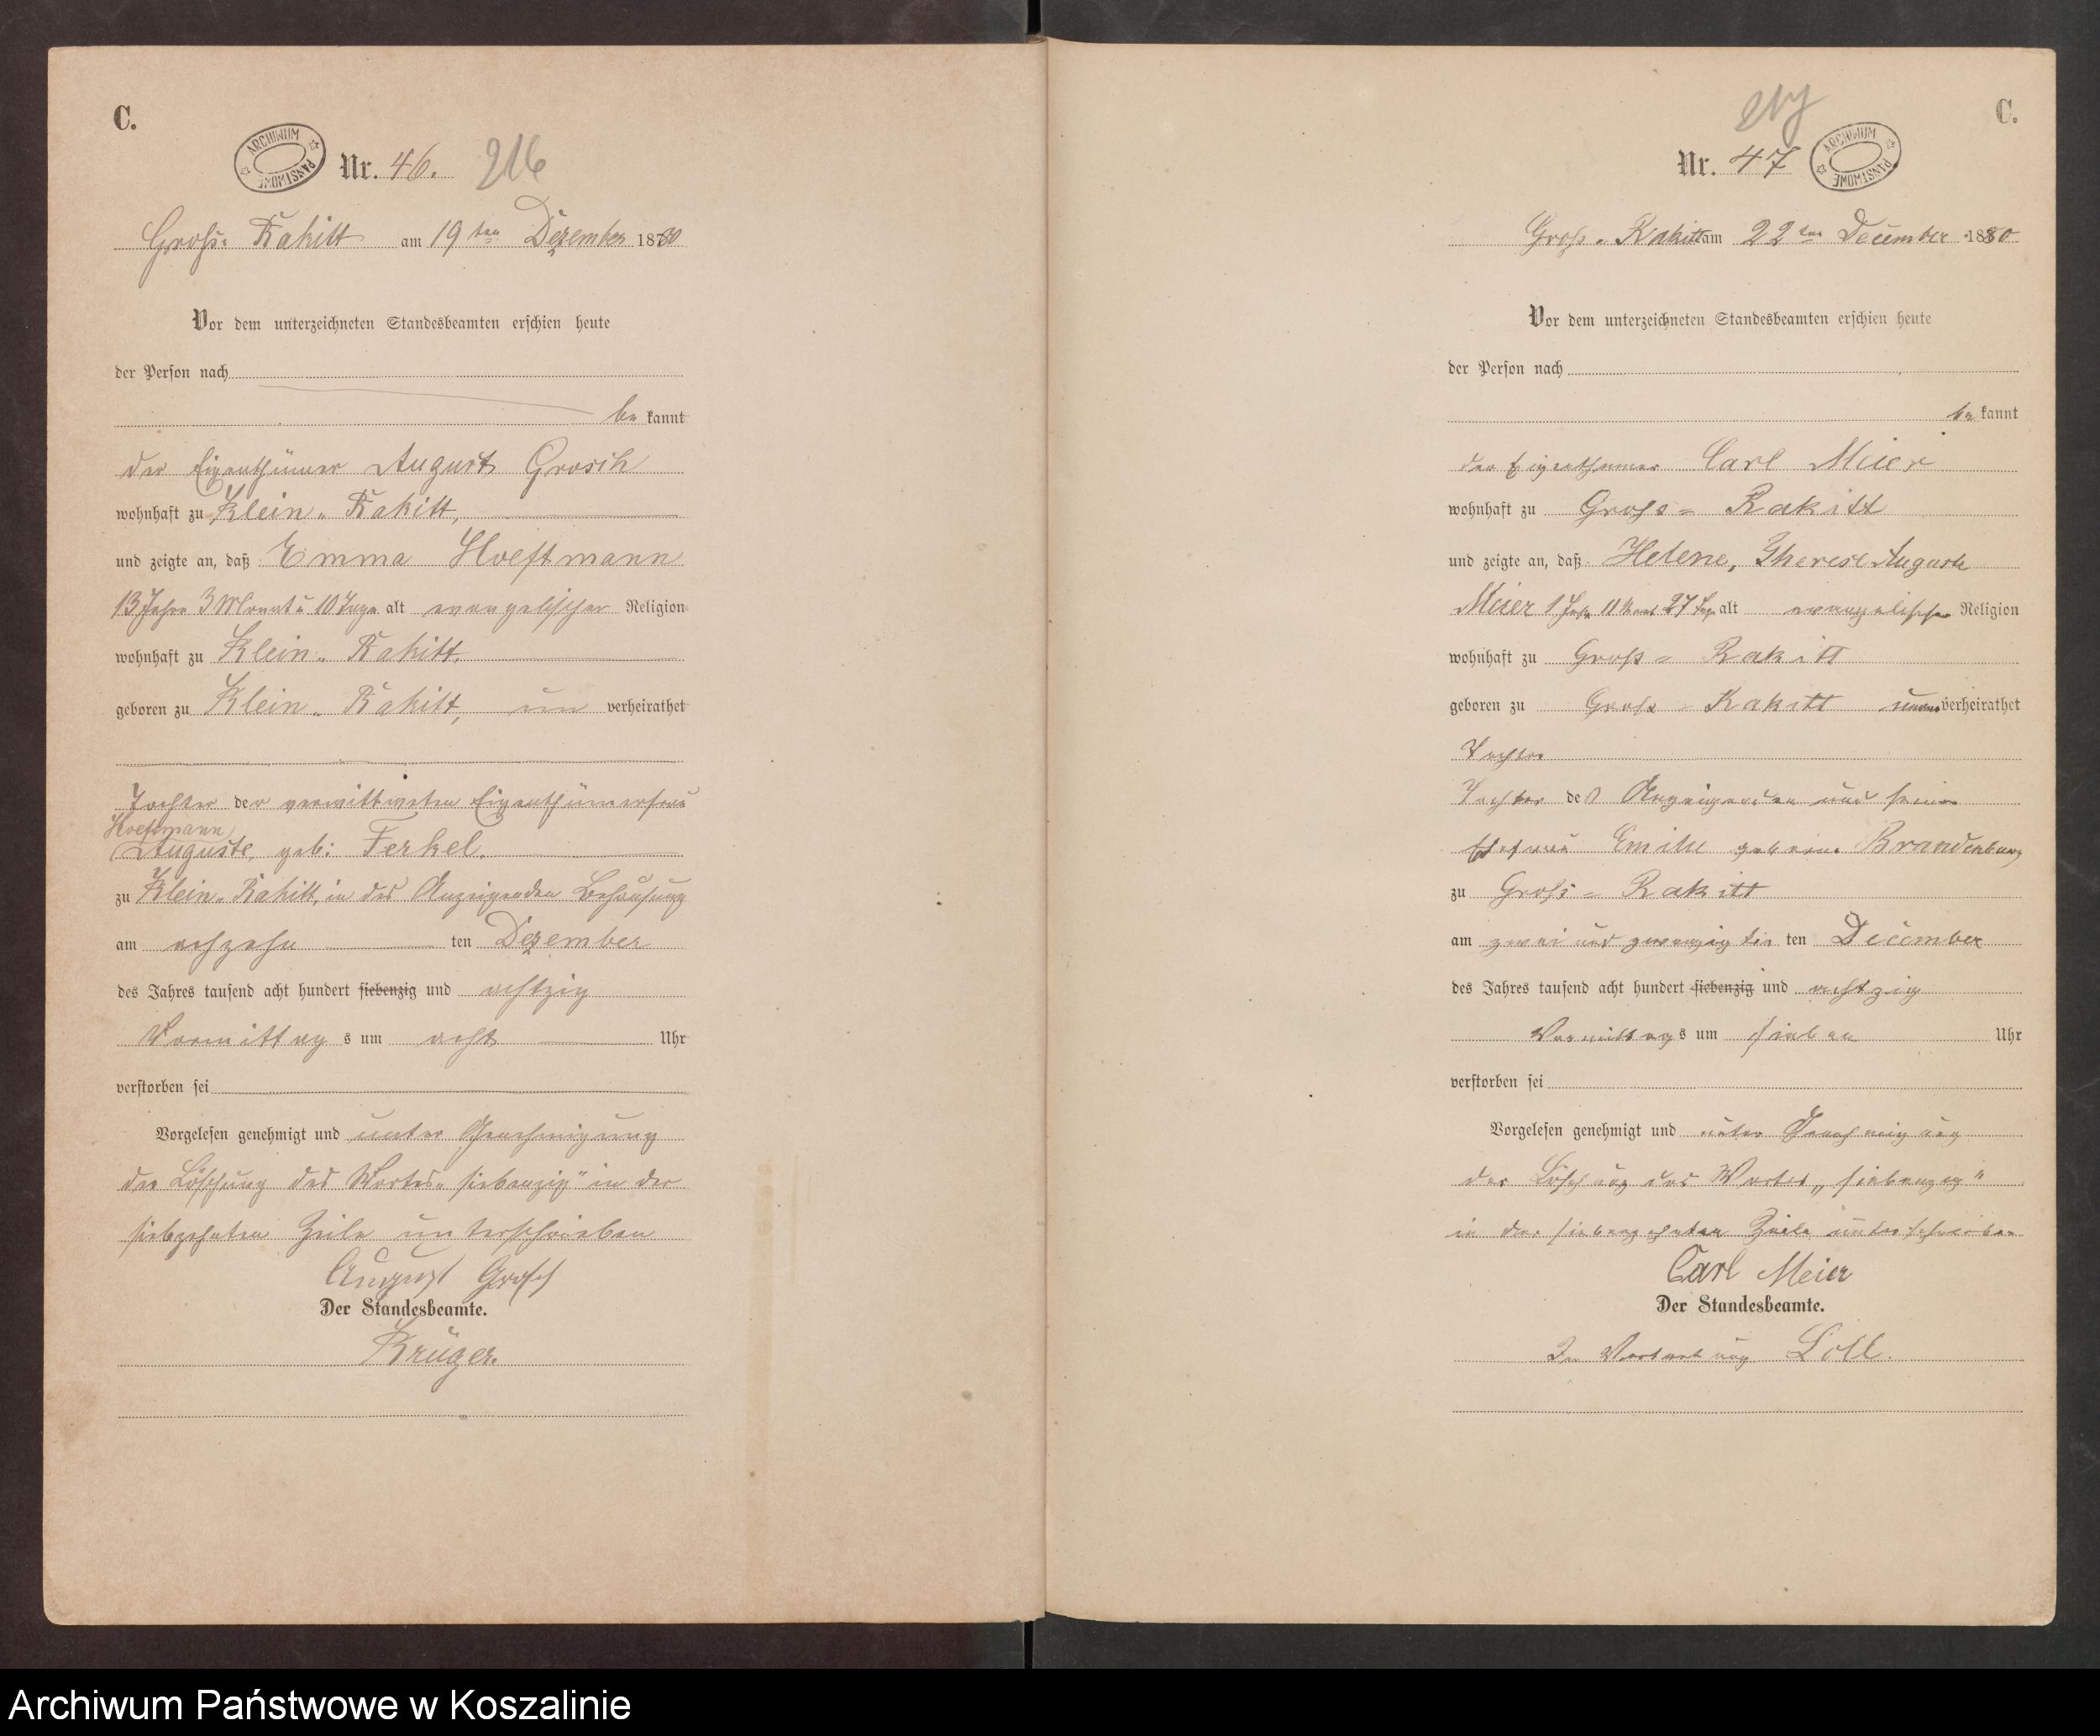 C.
ARCHIWUM PAŃSTWOWE
Nr. 46. 216
Groß-Rakitt am 19ten Dezember 1880
Vor dem unterzeichneten Standesbeamten erschien heute
der Person nach
be kannt
der Eigenthümer August Grosch
wohnhaft zu Klein-Rakitt,
und zeigte an, daß Emma Hoeftmann
13 Jahre 3 Monate 10 Tage alt evangelischer Religion
wohnhaft zu Klein-Rakitt,
geboren zu Klein-Rakitt, un verheirathet
Tochter der verwittweten Eigenthümerfrau
Hoeftmann
Auguste, geb: Ferkel.
zu Klein-Rakitt, in des Anzeigenden Behausung
am achzehn ten Dezember
des Jahres tausend acht hundert siebenzig und achtzig
Vormittag s um acht Uhr
verstorben sei
Vorgelesen genehmigt und unter Genehmigung
der Löschung des Wortes "siebenzig" in der
siebzehnten Zeile unterschrieben
August Grosch
Der Standesbeamte.
Krüger.
C.
217
Nr. 47
ARCHIWUM PAŃSTWOWE
Groß-Rakitt am 22ten December 1880
Vor dem unterzeichneten Standesbeamten erschien heute
der Person nach
be kannt
der Eigenthümer Carl Meier
wohnhaft zu Groß=Rakitt
und zeigte an, daß Helene, Therese Auguste
Meier 1 Jahr 11 Monat 27 Tage alt evangelischer Religion
wohnhaft zu Groß=Rakitt
geboren zu Groß=Rakitt unverheirathet
Tochter
Tochter des Anzeigenden und seiner
Ehefrau Emilie geborene Brandenburg
zu Groß=Rakitt
am zwei und zwanzigsten ten December
des Jahres tausend acht hundert siebenzig und achtzig
Vormittags um sieben Uhr
verstorben sei
Vorgelesen genehmigt und unter Genehmigung
der Löschung des Wortes „siebenzig"
in der siebenzehnten Zeile unterschrieben
Carl Meier
Der Standesbeamte.
In Vertretung Loll.
Archiwum Państwowe w Koszalinie